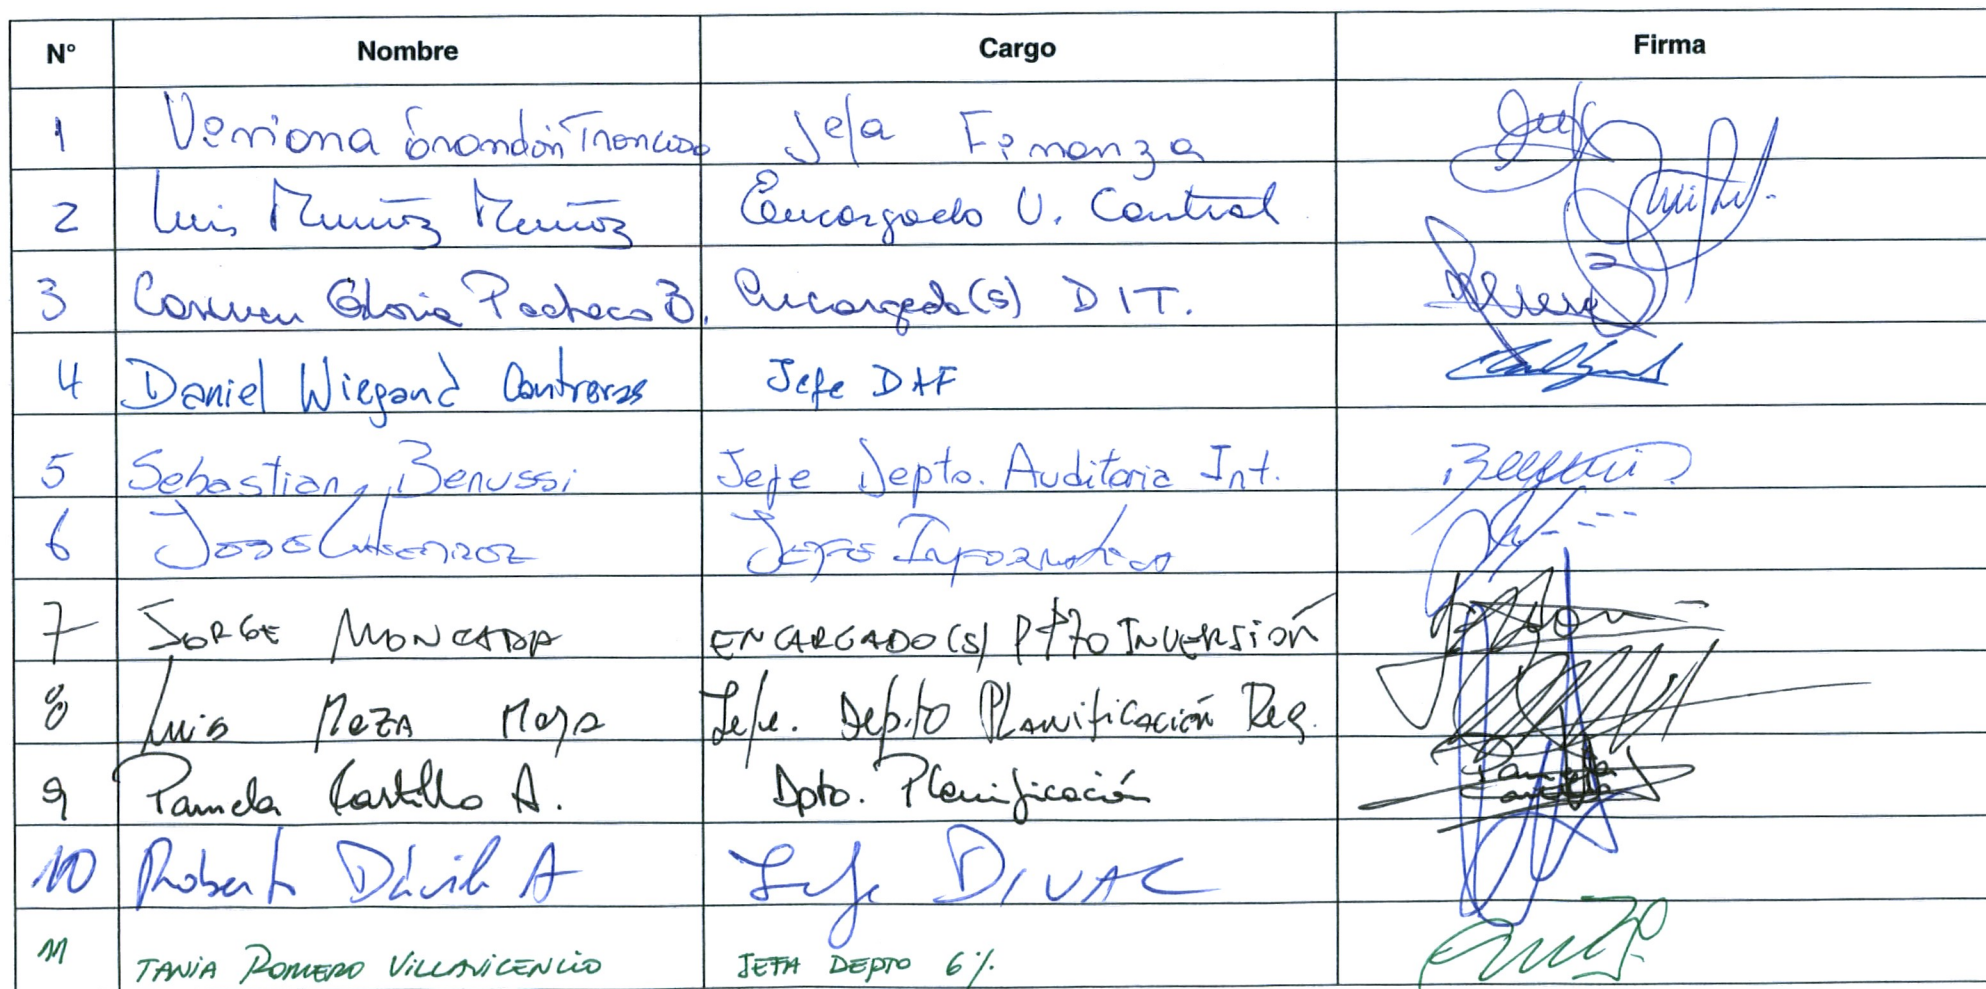 N° Nombre Cargo Firma
1 Jefa Finanza
2 Luis Muñoz Muñoz Encargado U. Control
3 Carmen Gloria Pacheco B. Encargada(s) DIT.
4 Daniel Wiegand Contreras Jefe DAF
5 Sebastian Benussi Jefe Depto. Auditoria Int.
6 Jose Gutierrez Jefe Informatica
7 JORGE MONCADA ENCARGADO(S) PPTO INVERSIÓN
8 Luis MEZA Moya Jefe. Depto Planificación Reg.
9 Pamela Castillo A. Dpto. Planificación Pamela Castillo
10 Roberto Dávila A Jefe DIVAC
11 TANIA ROMERO VILLAVICENCIO JEFA DEPTO 6%